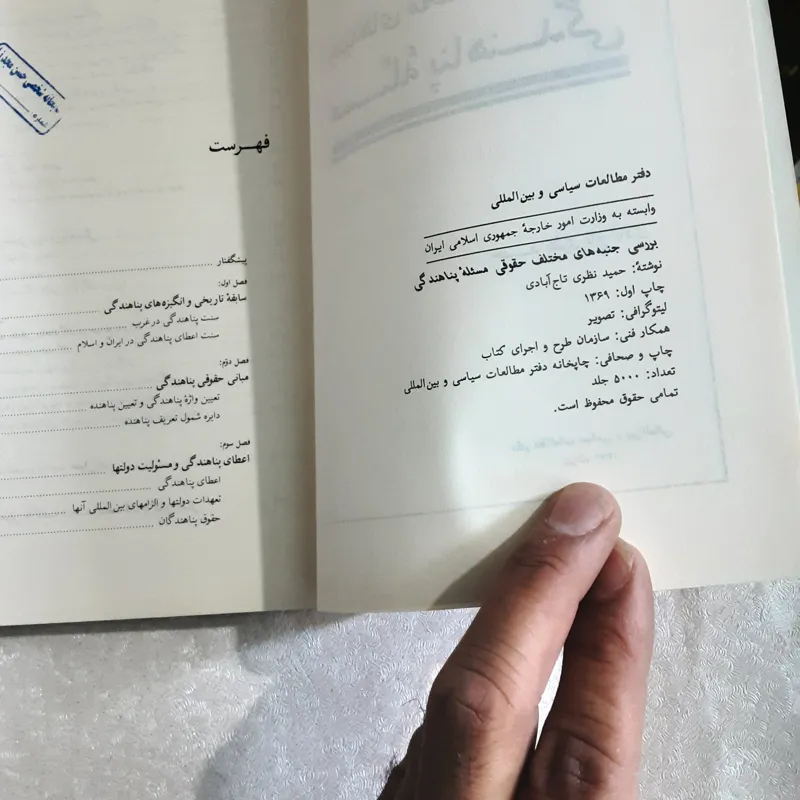 دفتر مطالعات سیاسی و بین‌المللی
وابسته به وزارت امور خارجهٔ جمهوری اسلامی ایران
بررسی جنبه‌های مختلف حقوقی مسئلهٔ پناهندگی
نوشتهٔ: حمید نظری تاج‌آبادی
چاپ اول: ۱۳۶۹
لیتوگرافی: تصویر
همکار فنی: سازمان طرح و اجرای کتاب
چاپ و صحافی: چاپخانه دفتر مطالعات سیاسی و بین‌المللی
تعداد: ۵۰۰۰ جلد
تمامی حقوق محفوظ است.
فهـرست
پیشگفتار
فصل اول:
سابقهٔ تاریخی و انگیزه‌های پناهندگی
سنت پناهندگی در غرب
سنت اعطای پناهندگی در ایران و اسلام
فصل دوّم:
مبانی حقوقی پناهندگی
تعیین واژهٔ پناهندگی و تعیین پناهنده
دایره شمول تعریف پناهنده
فصل سوم:
اعطای پناهندگی و مسئولیت دولتها
اعطای پناهندگی
تعهدات دولتها و الزامهای بین‌المللی آنها
حقوق پناهندگان
شخصی حسن
شماره